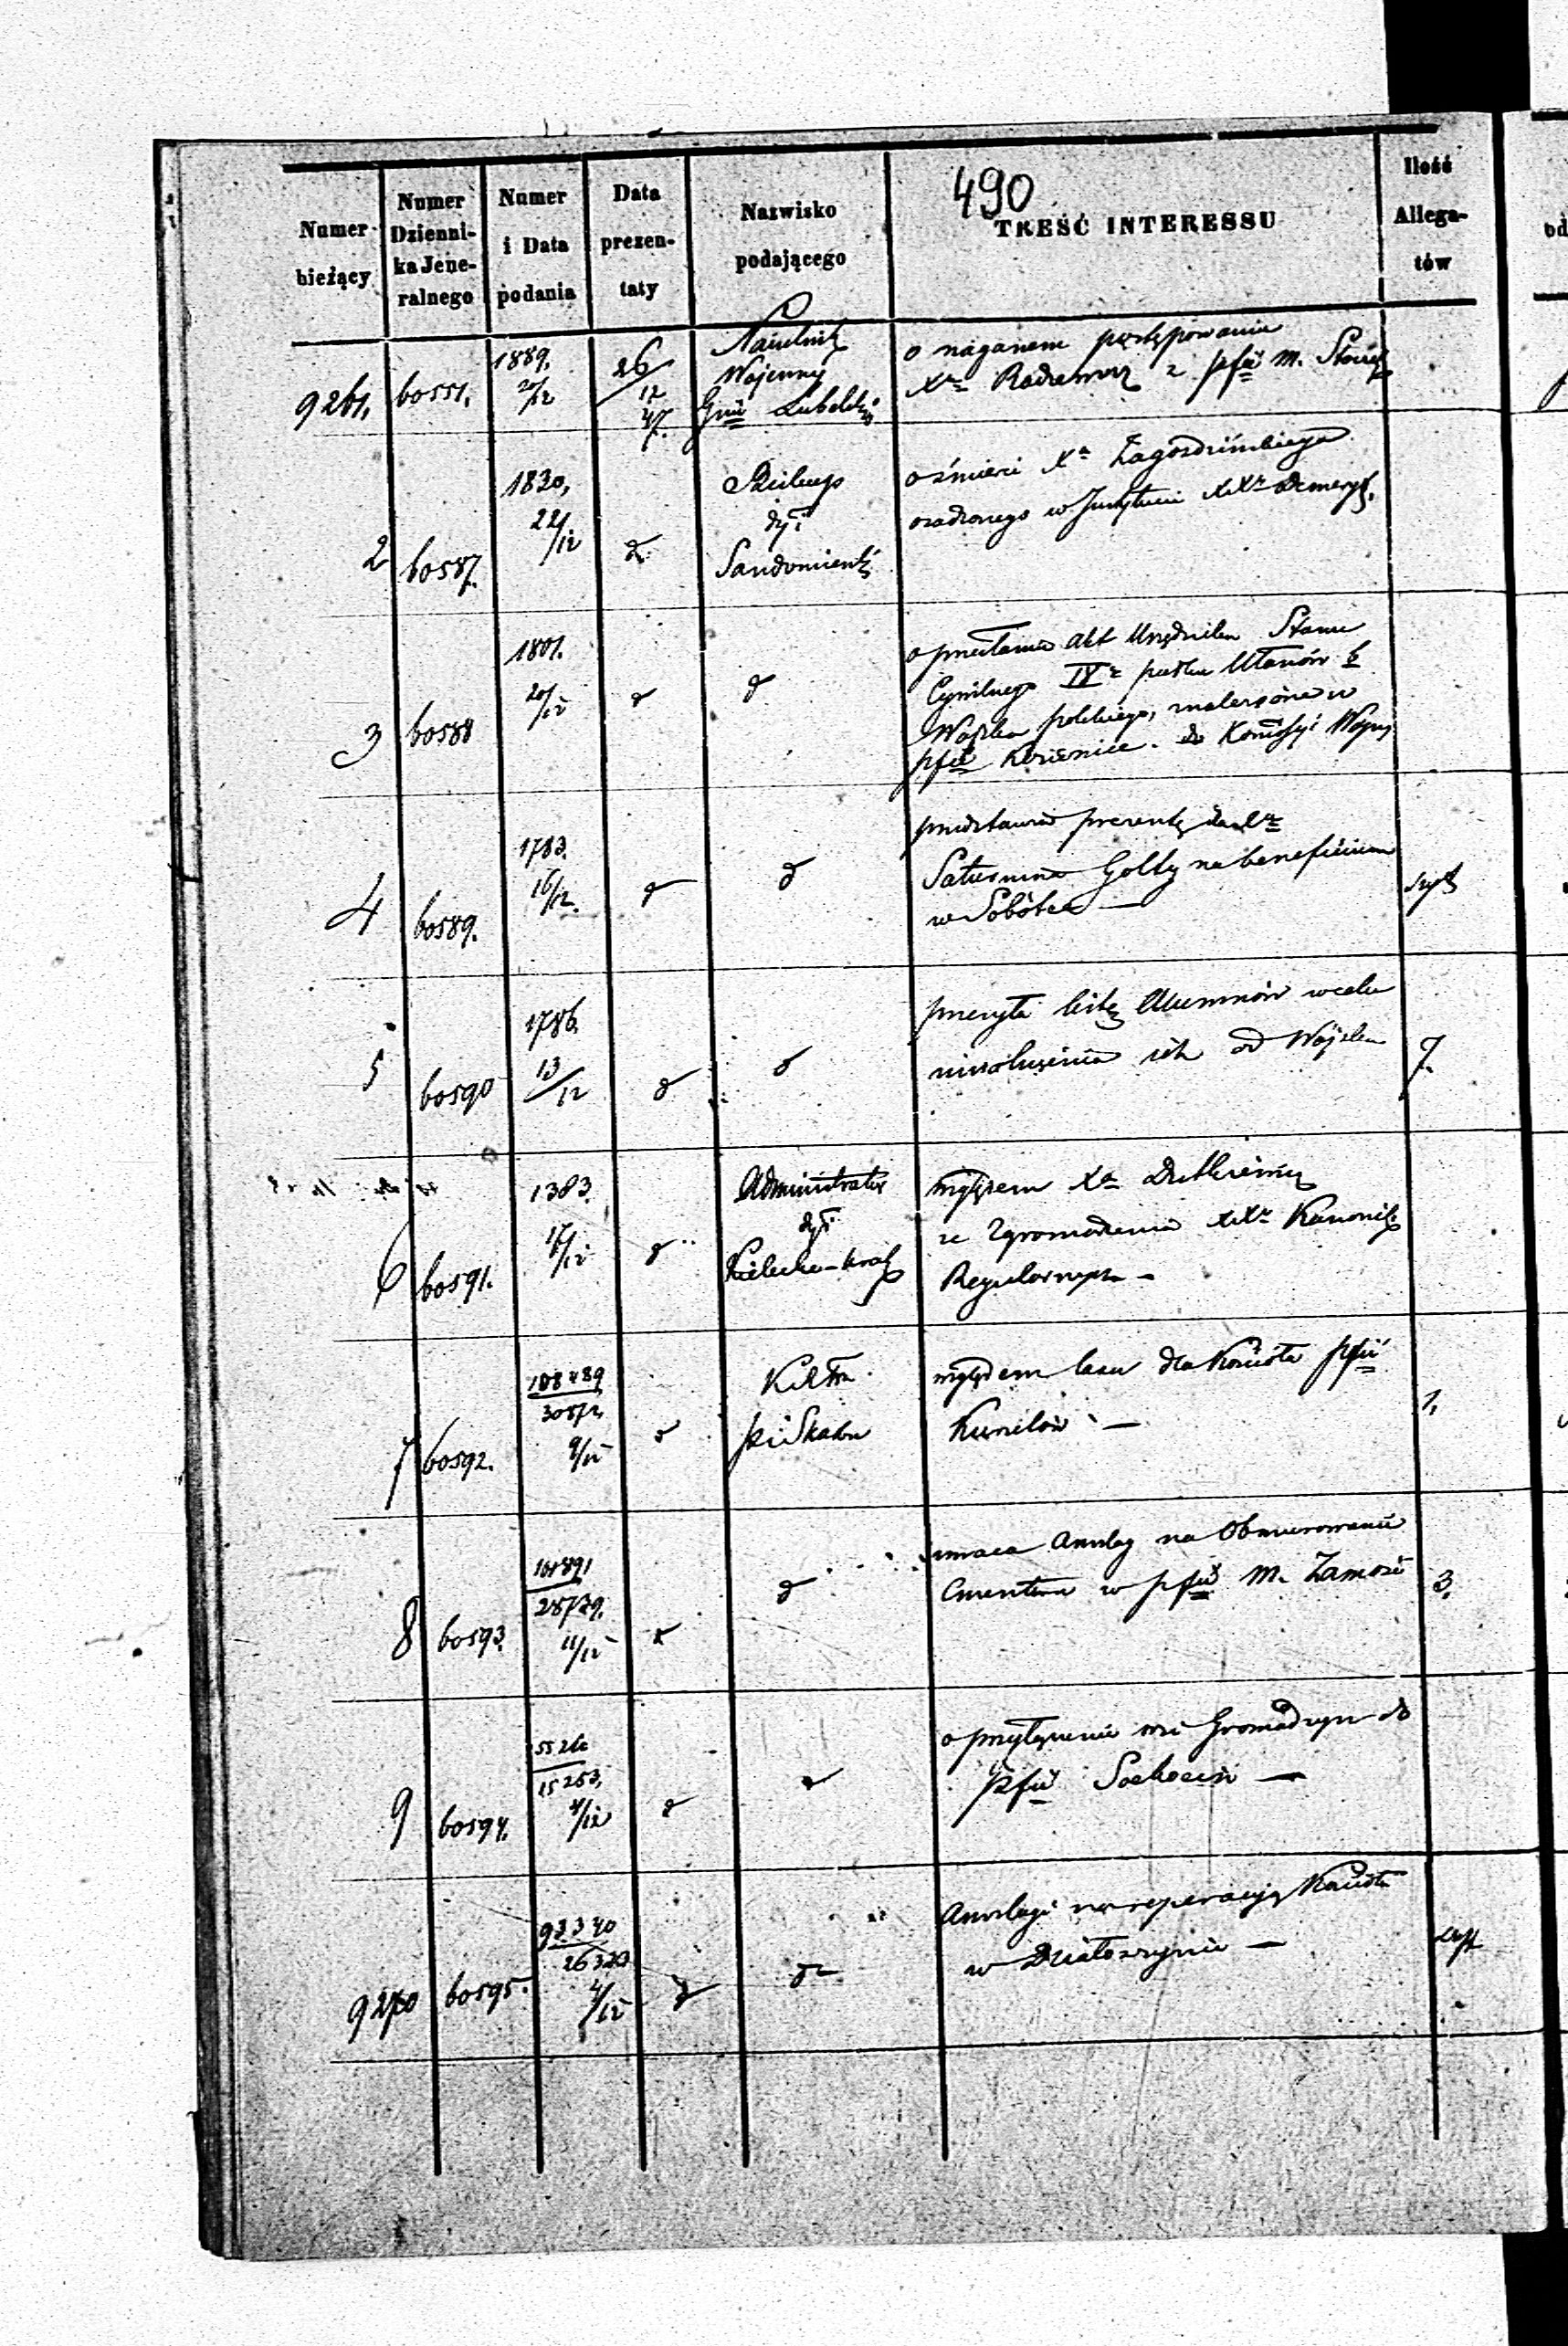 490
Numer bieżący
Numer Dzienni-
ka Jene-
ralnego
Numer
i Data
podania
Data
prezen-
taty
Nazwisko
podającego
TREŚĆ INTERESSU
Ilość
Allega-
tów
9261. 60551. 1889. 20/12 26/12 47.
Naczelnik
Wojenny
Gnii Lubelskiej
o nagannem postępowaniu
Xa Radziewicz z pfii M.
2 60587. 1820, 22/12 d
dyi
Sandomiersk
o śmierci Xa Zagozdzińskiego
osadzonego w Instytucie XXy Demeryt.
3 60588 1801. 20/12 d d
o przesłanie Akt Urzędnika Stanu
Cywilnego IVo pułku Ułanów b
Wojska polskiego, znalezione w
pfii Kozienice. do Komissyi Wojny
4 60589. 1783. 16/12. d d
przedstawia prezentę dla Xa
Saturnina Golby na beneficium
w Sobótce —
szyt
5 60590 1786. 13/12 d d
przesyła listę Alumnów w celu
ich od Wojska
7.
6 60591. 1383. 17/12 d
Administrator
dyi
Kielecko-Krak
względem Xa Dutkiewicz
ze Zgromadzenia XXy Kanonik
Regularnych —
7 60592. 108489 9/12 d
K. R. Pm
i Skarbu
względem lasu dla Kościoła pfii
Kurzelów —
1.
8 60593. 28739. 11/12 d d
zwraca Anszlag na Obmurowanie
Cmentarza w pfii M. Zamość
3.
9 60594. 5526 15253, 4/12 d d
o przyłączenie wsi Gromadzyn do
pfii Sochocin —
9270 60595. 93340 26320 4/12 d d
Anszlagi na reperacyą Kościoła
w Działoszynie —
szyt